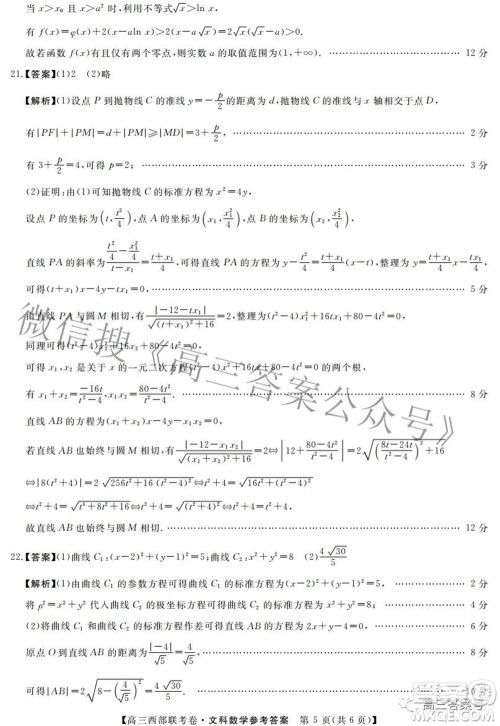 当 x>x₀ 且 x>a² 时,利用不等式√x>ln x,
有 f(x)=φ(x)+2(x-aln x)>2(x-aln x)>2(x-a√x)=2√x(√x-a)>0.
故若函数 f(x)有且仅有两个零点,则实数 a 的取值范围为(1,+∞). 12 分
21.【答案】(1)2 (2)略
【解析】(1)设点 P 到抛物线 C 的准线 y=-p/2的距离为 d,抛物线 C 的准线与 y 轴相交于点 D,
有|PF|+|PM|=d+|PM|≥|MD|=3+p/2, 2 分
有 3+p/2=4,可得 p=2; 3 分
(2)证明:由(1)可知抛物线 C 的标准方程为 x²=4y,
设点 P 的坐标为(t,t²/4),点 A 的坐标为(x₁,x₁²/4),点 B 的坐标为(x₂,x₂²/4),
直线 PA 的斜率为(t²/4-x₁²/4)/(t-x₁)=(t+x₁)/4,可得直线 PA 的方程为 y-t²/4=(t+x₁)/4(x-t),整理为 y=(t+x₁)/4 x-tx₁/4,
可得(t+x₁)x-4y-tx₁=0, 5 分
由直线 PA 与圆 M 相切,有|-12-tx₁|/√((t+x₁)²+16)=2,整理为(t²-4)x₁²+16tx₁+80-4t²=0,
同理可得(t²-4)x₂²+16tx₂+80-4t²=0,
可得 x₁,x₂ 是关于 x 的一元二次方程(t²-4)x²+16tx+80-4t²=0 的两个根,
有 x₁+x₂=-16t/(t²-4),x₁x₂=(80-4t²)/(t²-4), 8 分
直线 AB 的方程为(x₁+x₂)x-4y-x₁x₂=0,
若直线 AB 也始终与圆 M 相切,有|-12-x₁x₂|/√((x₁+x₂)²+16)=2⇔|12+(80-4t²)/(t²-4)|=2√(((8t-24t)/(t²-4))²+16)
⇔|8(t²+4)|=2√(256t²+16(t²-4)²)⇔t²+4=√(16t²+(t²-4)²)
⇔t²+4=√(t⁴+8t²+16)⇔t²+4=√((t²+4)²)⇔t²+4=t²+4,
故直线 AB 也始终与圆 M 相切. 12 分
22.【答案】(1)曲线 C₁:(x-2)²+(y-1)²=5;曲线 C₂:x²+y²=8 (2)4√30/5
【解析】(1)由曲线 C₁ 的参数方程可得曲线 C₁ 的标准方程为(x-2)²+(y-1)²=5, 2 分
将 ρ²=x²+y² 代入曲线 C₂ 的极坐标方程可得曲线 C₂ 的标准方程为 x²+y²=8; 4 分
(2)将曲线 C₁ 和曲线 C₂ 的标准方程作差可得直线 AB 的方程为 2x+y-4=0, 6 分
原点 O 到直线 AB 的距离为|-4|/√5=4/√5, 8 分
可得|AB|=2√(8-(4/√5)²)=4√30/5. 10 分
【高三西部联考卷·文科数学参考答案 第 5 页(共 6 页)】
微信搜《高三答案公众号》
高三答案号